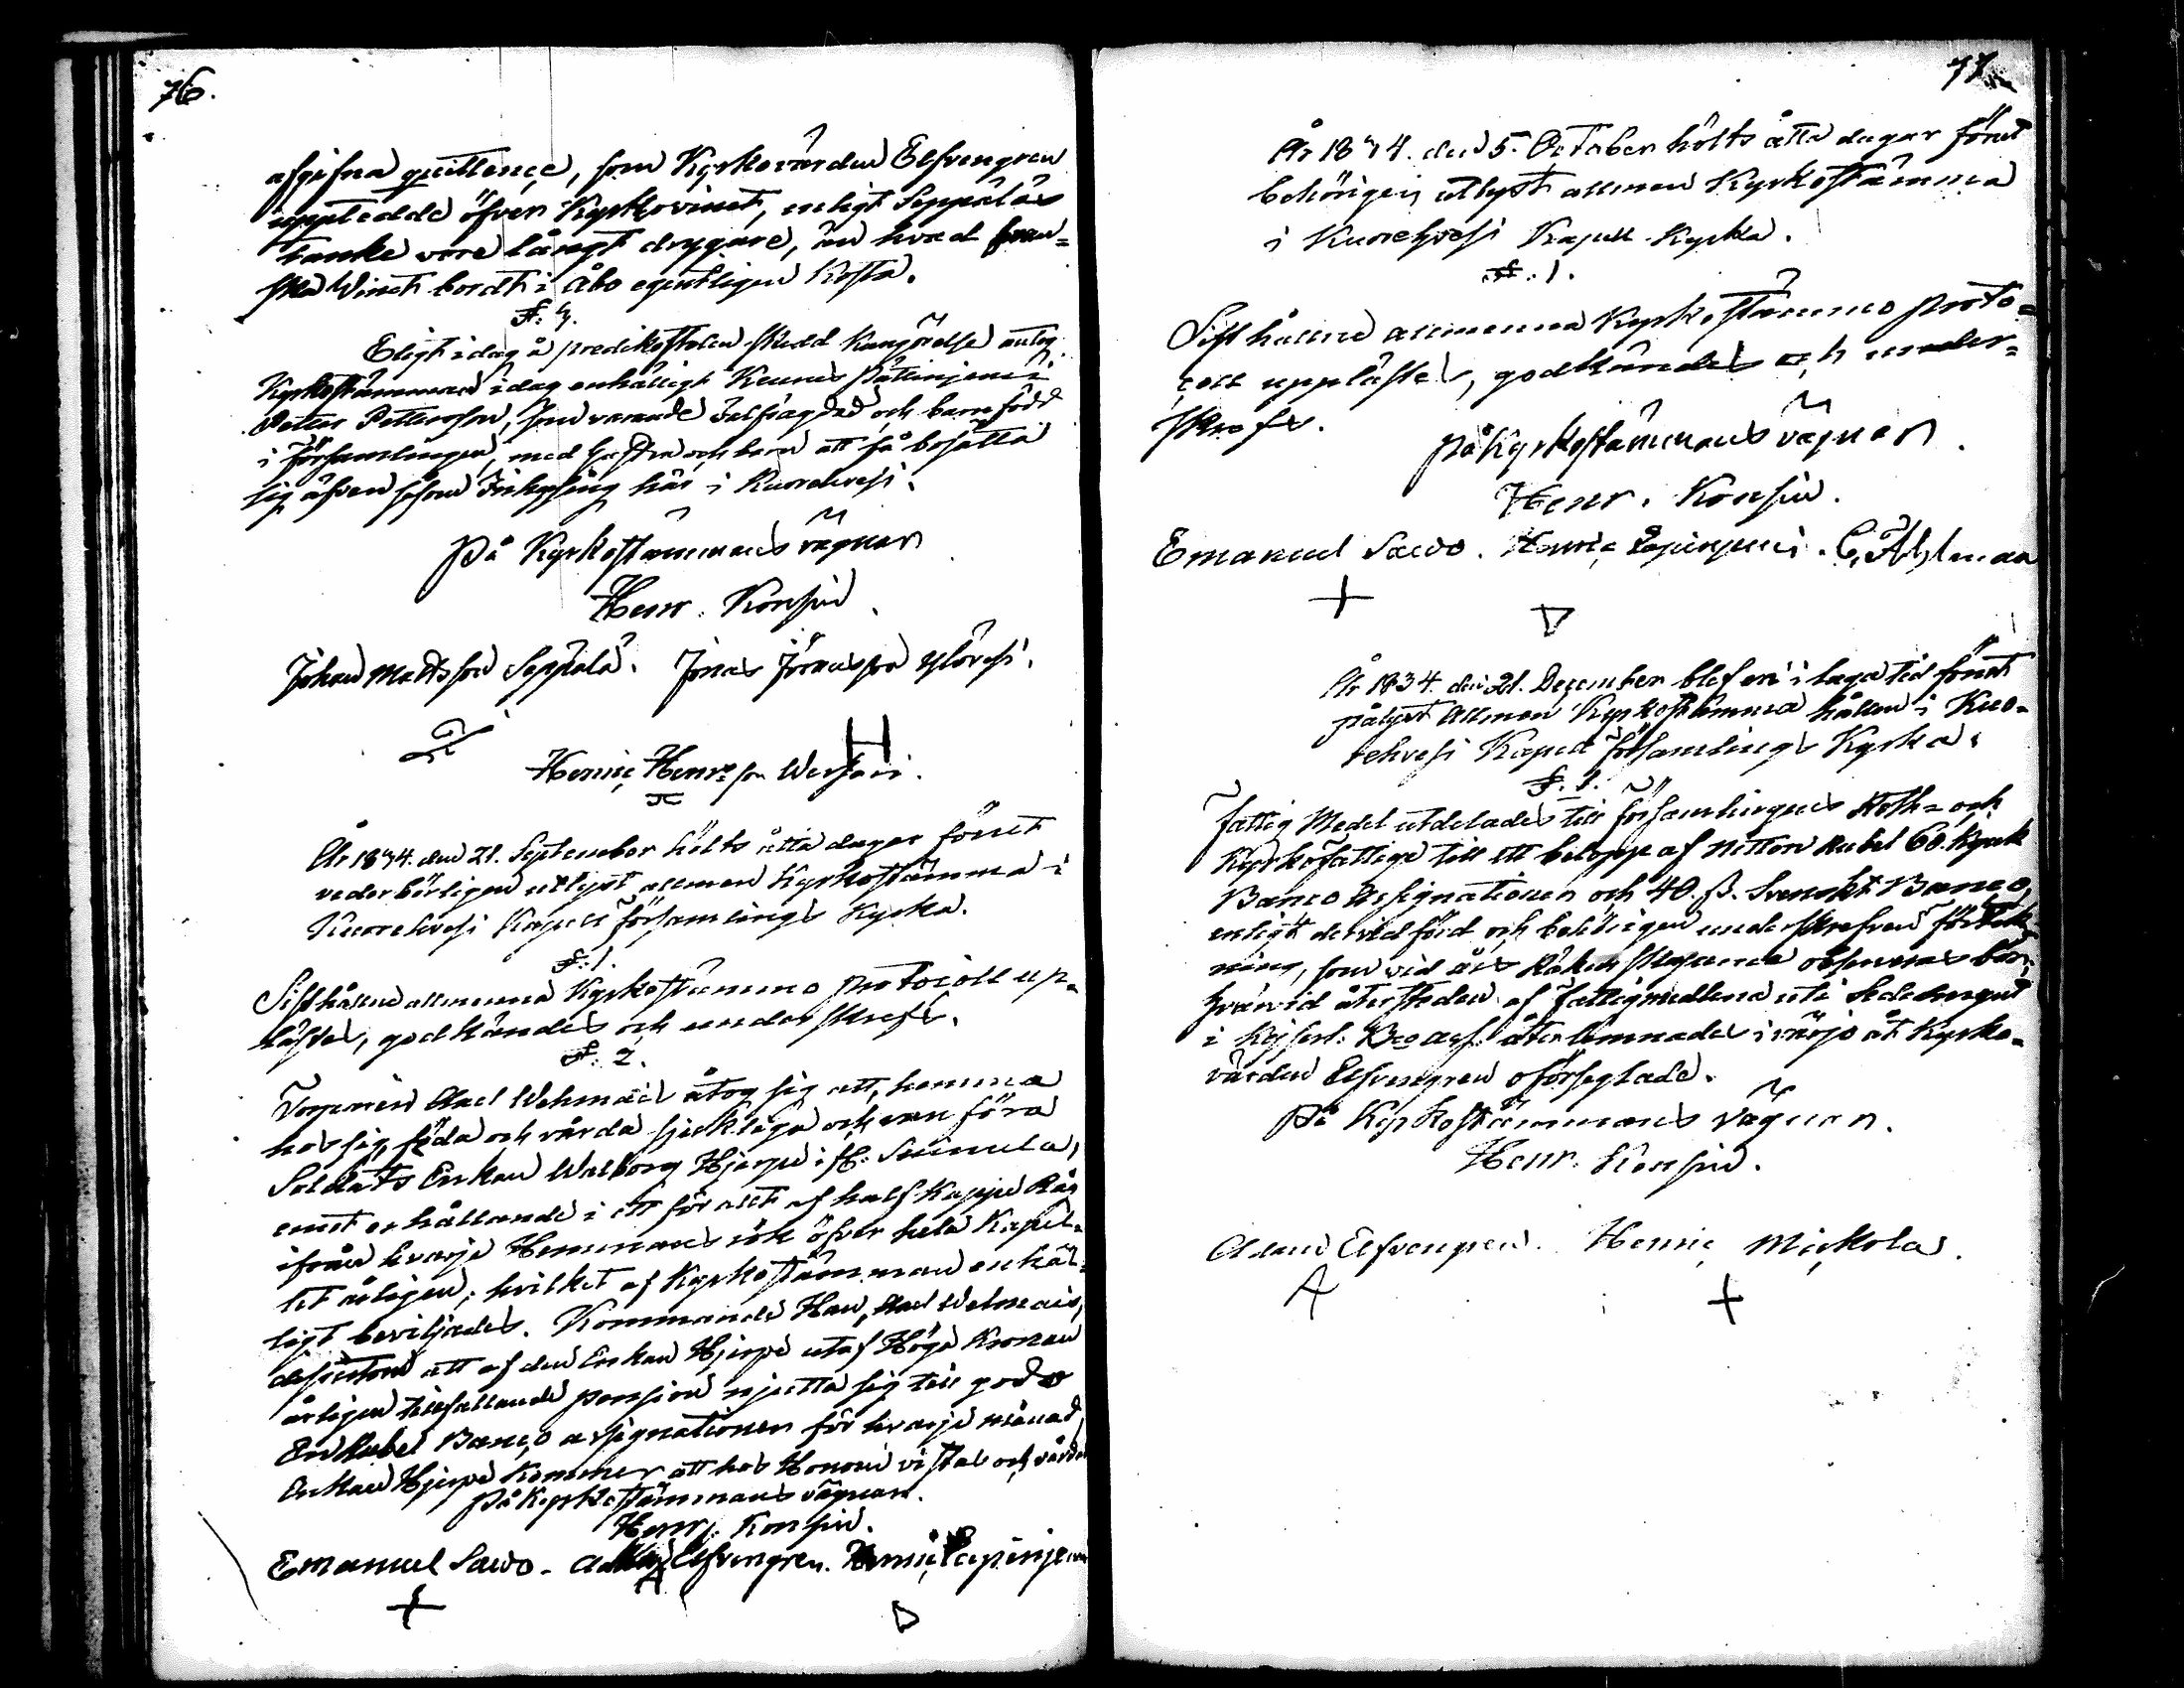 76.
afgifna quittence, som Kyrkovärden Elfvengren
uppteedde öfver Kyrkovinet, enligt Seppäläs
tanke vore långt drygare, än hvad fran=
ska Vinet bordt i Åbo egentligen kosta.
§: 4.
Eligt i dag å predikostolen skedd kungörelse antog
Kyrkostämman i dag enhälligt
Petter Pettersson, som varande och barnfödd
i församlingen, med hustru och barn att få bosätta
sig äfven såsom Inhysing här i Kuorehvesi.
På Kyrkostämmans vägnar
Henr. Konsin.
Johan Mattsson Seppälä. Jonas Jöransson Ylövesi.
H
Henric Henrsson
År 1834. den 21. September hölts åtta dagar förut
vederbörligen utlyst allmen Kyrkostämma i
Kuorehvesi Kapell församlings Kyrka.
§: 1.
Sisthållne allmenna Kyrkostämmo protocoll up=
lästes, godkändes och underskrefs.
§: 2.
Torparen Abel Wehmais åtog sig att, hemma
hos sig, föda och vårda sjukliga och van föra
Soldats Enkan Walborg Hjerpe i H: Suinula,
emot erhållande i ett för allt af half Kappe Råg
ifrån hvarje Hemmans rök öfver hela Kapel=
let årligen; hvilket af Kyrkostämman enhäl=
ligt beviljades. Kommande Han, Abel Wehmais,
desutom att af den Enkan Hjerpe utaf Höga Kronan
årligen tillfallande pension njutta sig till godo
En Rubel Banco assignationer för hvarje månad,
Enkan Hjerpe kommer att hos Honom vistas och vårdas
På Kyrkostämmans vägnar.
Henr. Konsin.
Emanuel Sawo. Adam Elfvengren. Henric Papinjemi
+ A D
77
År 1834. den 5. October hölts åtta dagar förut
behörigen utlyst allmen Kyrkostämma
i Kuorehvesi Kapell Kyrka.
§: 1.
Sisthållne allmenna Kyrkostämmo proto=
coll upplästes, godkändes och under=
skrefs.
På Kyrkostämmans vägnar.
Henr. Konsin.
Emanuel Sawo. Henric Papinjemi. C. Ahlman
+ D
År 1834. den 21. December blef en i laga tid förut
pålyst Allmen Kyrkostämma hållen i Kuo=
rehvesi Kapell församlings Kyrka.
§. 1.
Fattig Medel utdelades till församlingens Roth= och
Kyrkofattige till ett belopp af Nitton Rubel 60. Kopek
Banco Assignationer och 40. ß. Svenskt Banco,
enligt dervid förd och behörigen underskrefven förtek
ning, som vid års Räkenskaperna observeras bör;
hvarvid återstoden af fattigmedlena uti
i Kejserl: Bco assf: återlemnades i närjo åt Kyrko=
värden Elfvengren oförseglade.
På Kyrkostämmans vägnar.
Henr. Konsin.
Adam Elfvengren. Henric Mickola.
A +